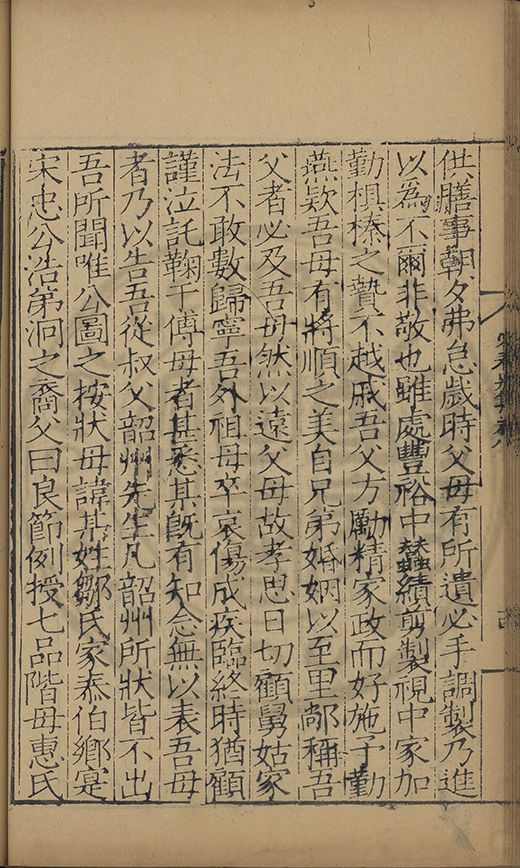 供膳事朝夕弗怠歲時父毋有所遺必手調製乃進
以為不爾非敬也雖處豐裕中蠶績剪製視中家加
勤棋榛之贄不越戚吾父方勵精家政而好施予勤
燕欵吾毋有將順之美自兄弟婚姻以至里鄰稱吾
父者必及吾毋然以遠父毋故孝思日切顧舅姑家
法不敢數歸寧吾外祖毋卒哀傷成疾臨終時猶顧
謹泣託鞠于傅毋者甚悉某既有知念無以表吾毋
者乃以告吾從叔父韶州先生凡韶州所狀皆不出
吾所聞唯公圖之按狀毋諱某姓鄒氏家泰伯鄉寔
宋忠公浩弟洞之裔父曰良節例授七品階毋惠氏